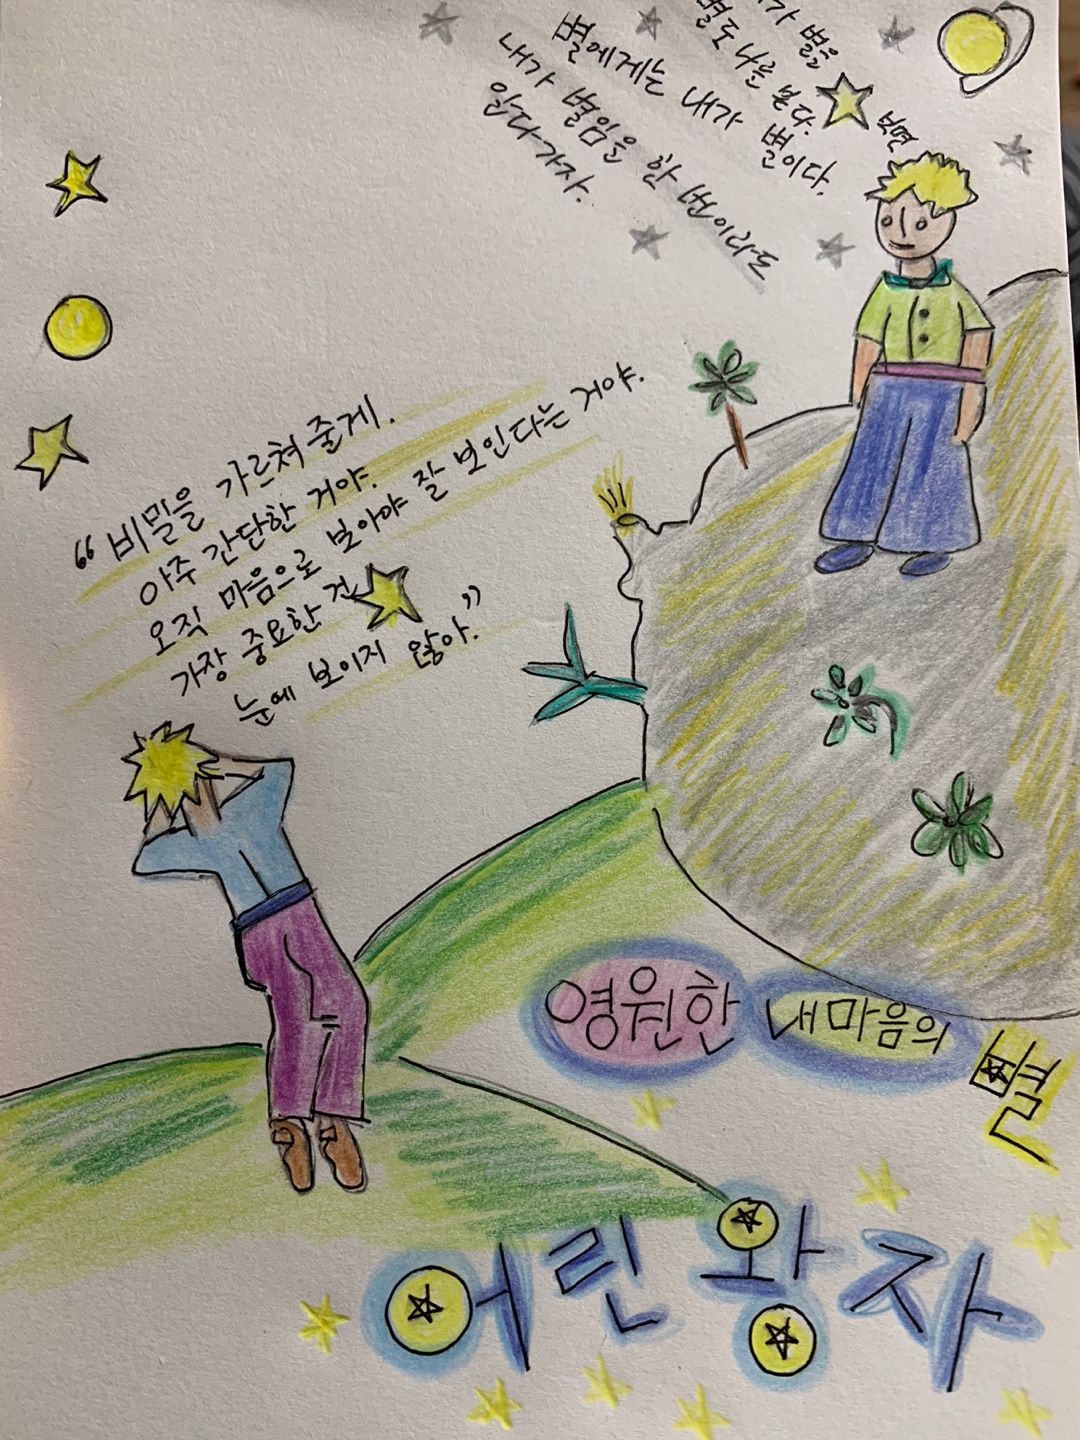 별을
별도 나를 본다.
별에게는 내가 별이다.
내가 별임을 한 번이라도
잊다가자.
“비밀을 가르쳐 줄게.
아주 간단한 거야.
오직 마음으로 보아야 잘 보인다는 거야.
가장 중요한 건
눈에 보이지 않아.”
영원한 내마음의 별
어린왕자